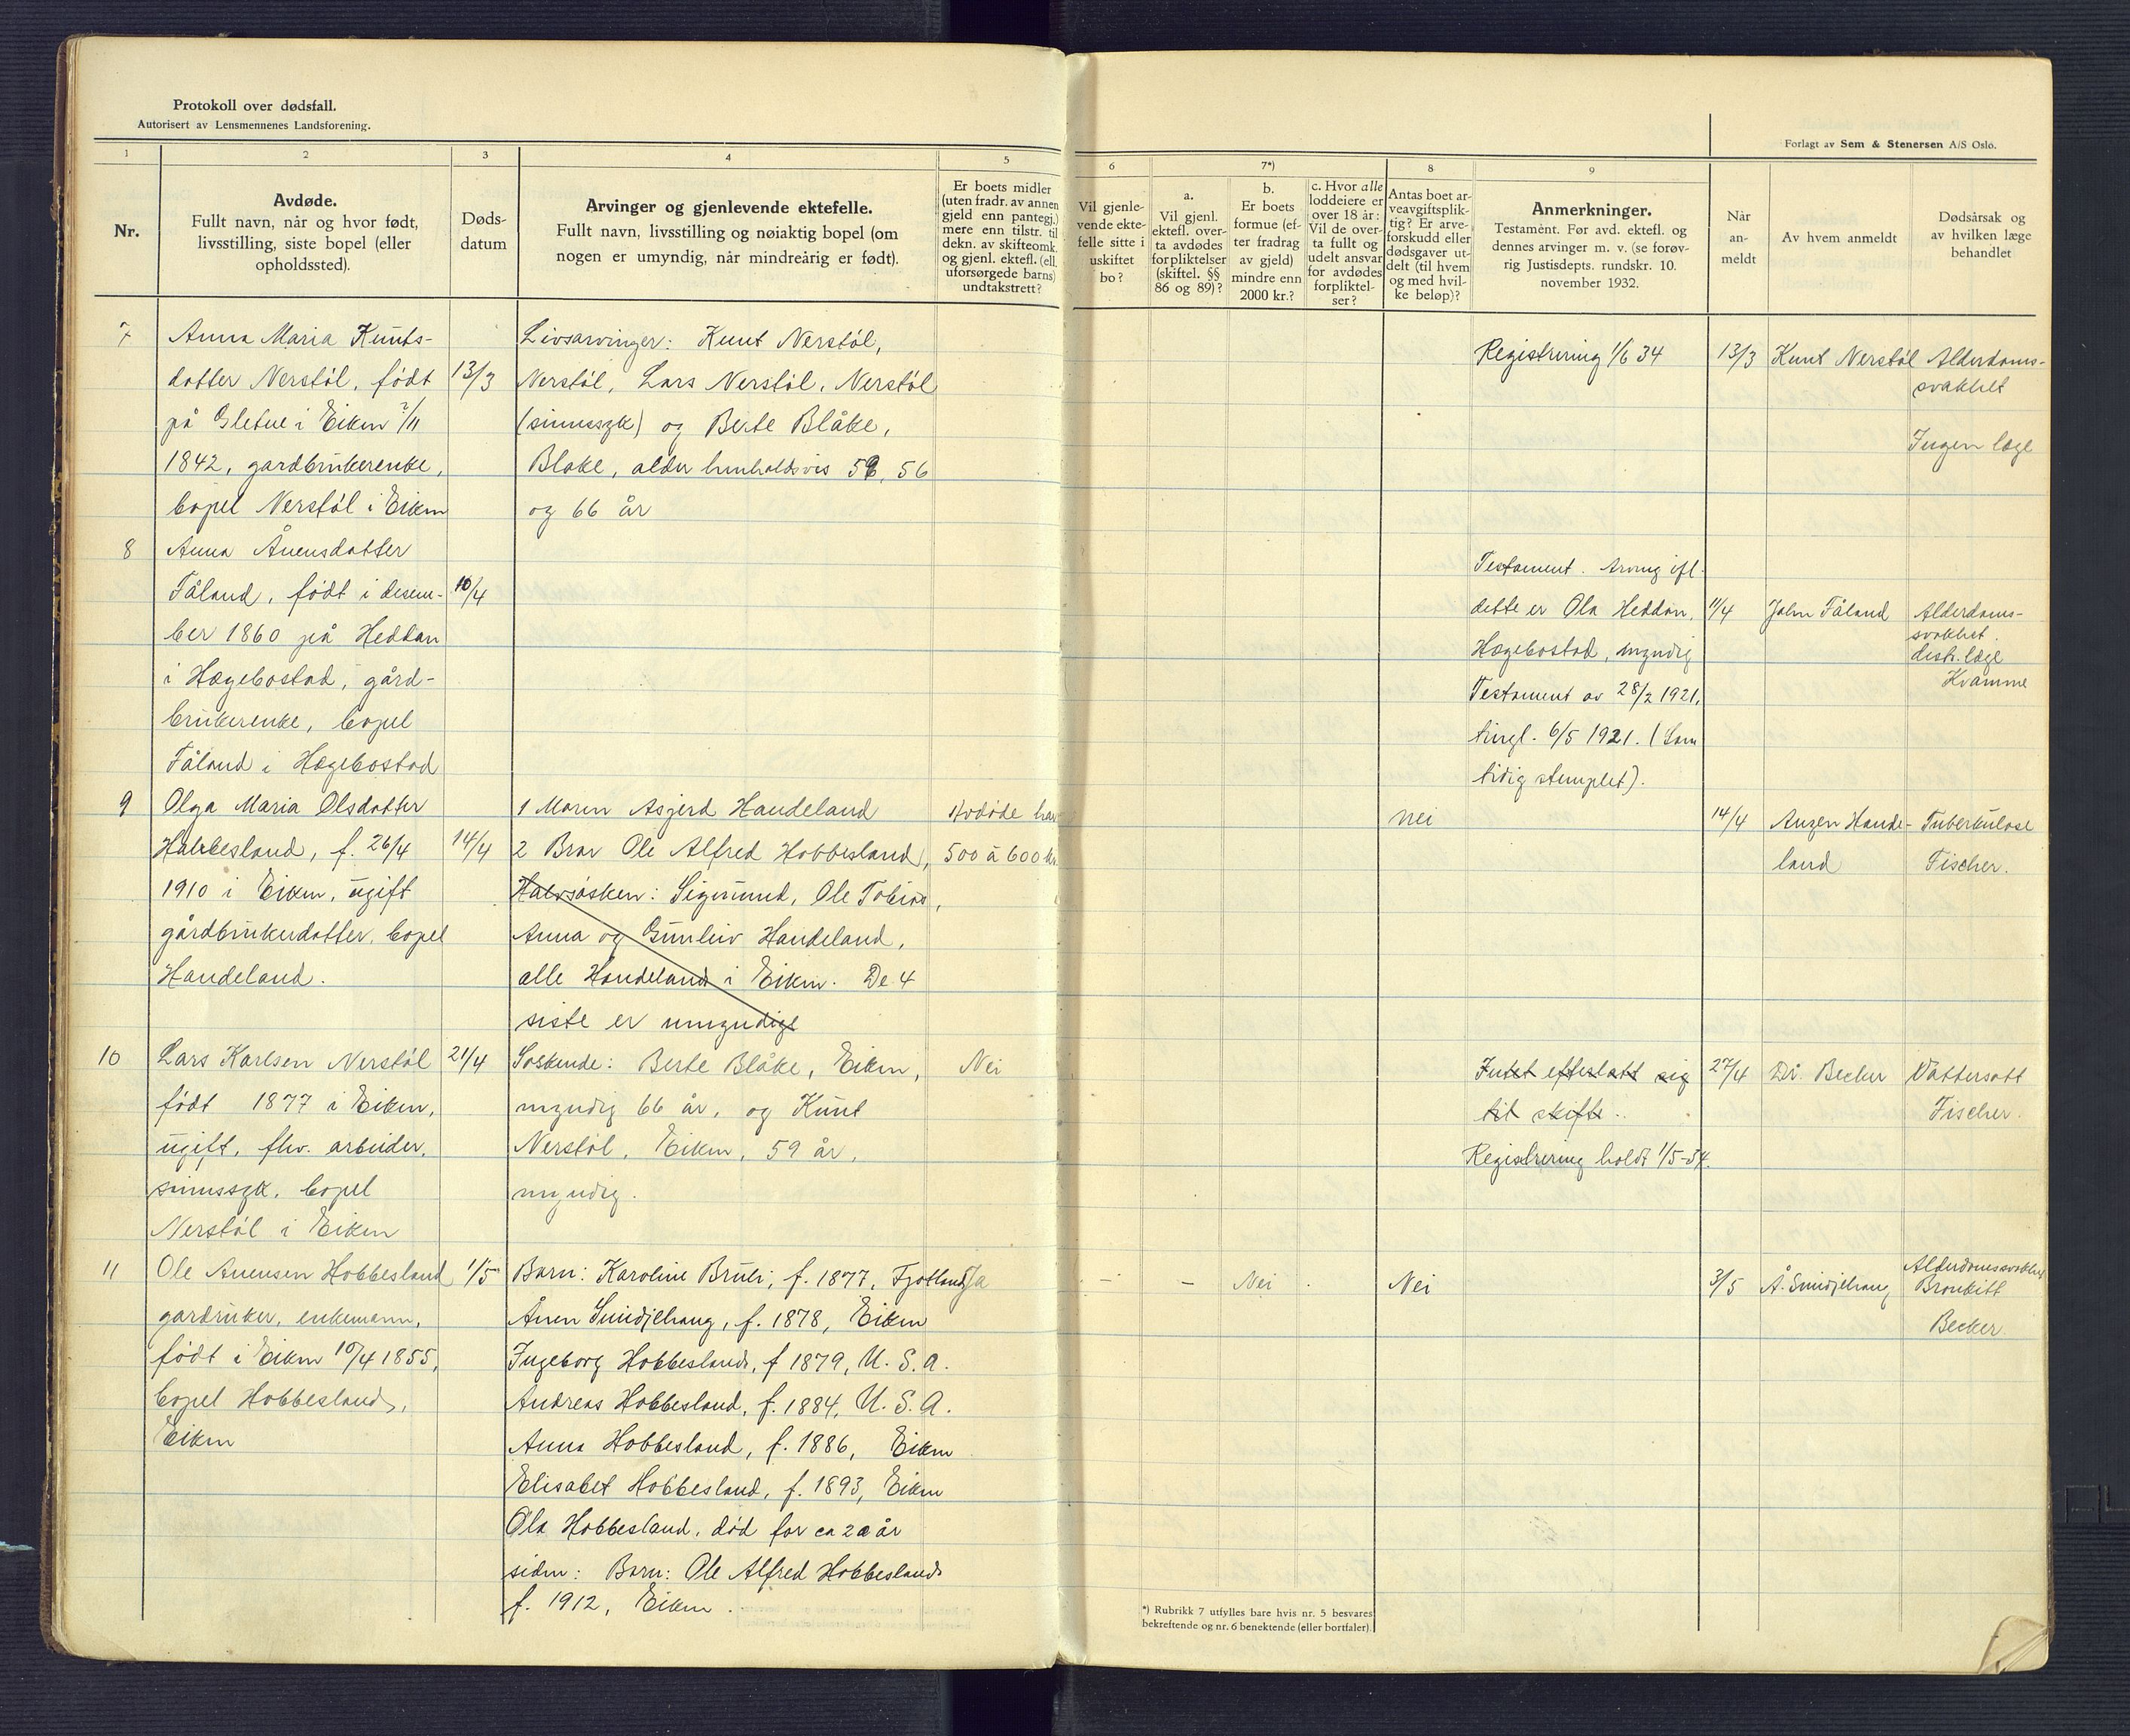 Protokoll over dødsfall.
Autorisert av Lensmennenes Landsforening.
Forlagt av Sem & Stenersen A/S Oslo.
1
2
3
4
5
6
7*)
8
9
Nr.
Avdøde.
Fullt navn, når og hvor født,
livsstilling, siste bopel (eller
opholdssted).
Døds-
datum
Arvinger og gjenlevende ektefelle.
Fullt navn, livsstilling og nøiaktig bopel (om
nogen er umyndig, når mindreårig er født).
Er boets midler
(uten fradr. av annen
gjeld enn pantegj.)
mere enn tilstr. til
dekn. av skifteomk.
og gjenl. ektefl. (ell.
uforsørgede barns)
undtakstrett?
Vil gjenle-
vende ekte-
felle sitte i
uskiftet
bo?
a.
Vil gjenl.
ektefl. over-
ta avdødes
forpliktelser
(skiftel. §§
86 og 89)?
b.
Er boets
formue (ef-
ter fradrag
av gjeld)
mindre enn
2000 kr.?
c. Hvor alle
loddeiere er
over 18 år:
Vil de over-
ta fullt og
udelt ansvar
for avdødes
forpliktel-
ser?
Antas boet ar-
veavgiftsplik-
tig? Er arve-
forskudd eller
dødsgaver ut-
delt (til hvem
og med hvil-
ke beløp)?
Anmerkninger.
Testament. Før avd. ektefl. og
dennes arvinger m. v. (se forøv-
rig Justisdepts. rundskr. 10.
november 1932.
Når
an-
meldt
Av hvem anmeldt
Dødsårsak og
av hvilken læge
behandlet
7
Anna Maria Knuts-
datter Nerstøl, født
på Gletne i Eiken 7/11
1842, gardbrukerenke,
bopel Nerstøl i Eiken
13/3
Livsarvinger: Knut Nerstøl,
Nerstøl, Lars Nerstøl, Nerstøl
(sinnssyk) og Berte Blåke,
Blake, alder henholdsvis 59, 56
og 66 år
Registrering 1/6 34
13/3
Knut Nerstøl
Alderdoms-
svakhet
Ingen læge
8
Anna Ånensdatter
Tåland, født i desem-
ber 1860 på Heddan
i Hægebostad, gård-
brukerenke, bopel
Tåland i Hægebostad
10/4
Testament. Arving ifl.
dette er Ola Heddan,
Hægebostad, myndig
Testament av 28/2 1921,
tingl. 6/5 1921. (Sam
tidig stemplet).
11/4
John Tåland
Alderdoms-
svakhet.
distr. læge
Kvamme
9
Olga Maria Olsdatter
Hobbesland, f. 26/4
1910 i Eiken, ugift
gårdbrukerdatter, bopel
Handeland.
14/4
1 Moren Asgjerd Handeland
2 Bror Ole Alfred Hobbesland,
Halvsøsken: Sigmund, Ole Tobias,
Anna og Gunleiv Handeland,
alle Handeland i Eiken. De 4
siste er umyndige
Avdøde har
500 à 600 kr.
nei
14/4
Anzen Hande-
land
Tuberkulose
Fischer.
10
Lars Karlsen Nerstøl
født 1877 i Eiken,
ugift, fhv. arbeider,
sinnssyk, bopel
Nerstøl i Eiken
21/4
Søskende: Berte Blåke, Eiken,
myndig 66 år, og Knut
Nerstøl, Eiken, 59 år,
myndig.
Nei
Intet efterlatt sig
til skifte.
Registrering holdt 1/5-34.
27/4
Dr. Becker
Vattersott
Fischer.
11
Ole Ånensen Hobbesland
gardruker, enkemann,
født i Eiken 10/4 1855,
bopel Hobbesland,
Eiken
1/5
Barn: Karoline Bruli, f. 1877, Fjotland
Ånen Smidjehaug, f. 1878, Eiken
Ingeborg Hobbesland, f 1879, U. S. A.
Andreas Hobbesland, f. 1884, U. S. A.
Anna Hobbesland, f. 1886, Eiken
Elisabet Hobbesland, f. 1893, Eiken
Ola Hobbesland, død for ca 20 år
siden: Barn: Ole Alfred Hobbesland
f. 1912, Eiken.
Ja
-
-
Nei
Nei
3/5
Å. Smidjehaug
Alderdomssvakhet
Bronkitt
Becker
*) Rubrikk 7 utfylles bare hvis nr. 5 besvares
bekreftende og nr. 6 benektende (eller bortfaler).